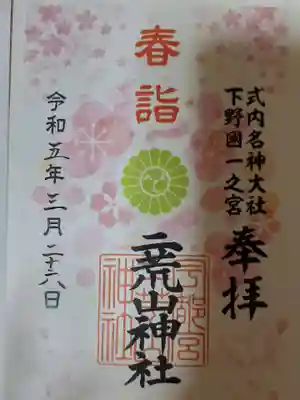 春詣
奉拝
式内名神大社
下野國一之宮
二荒山神社
宇都宮
神社
令和五年三月二十六日